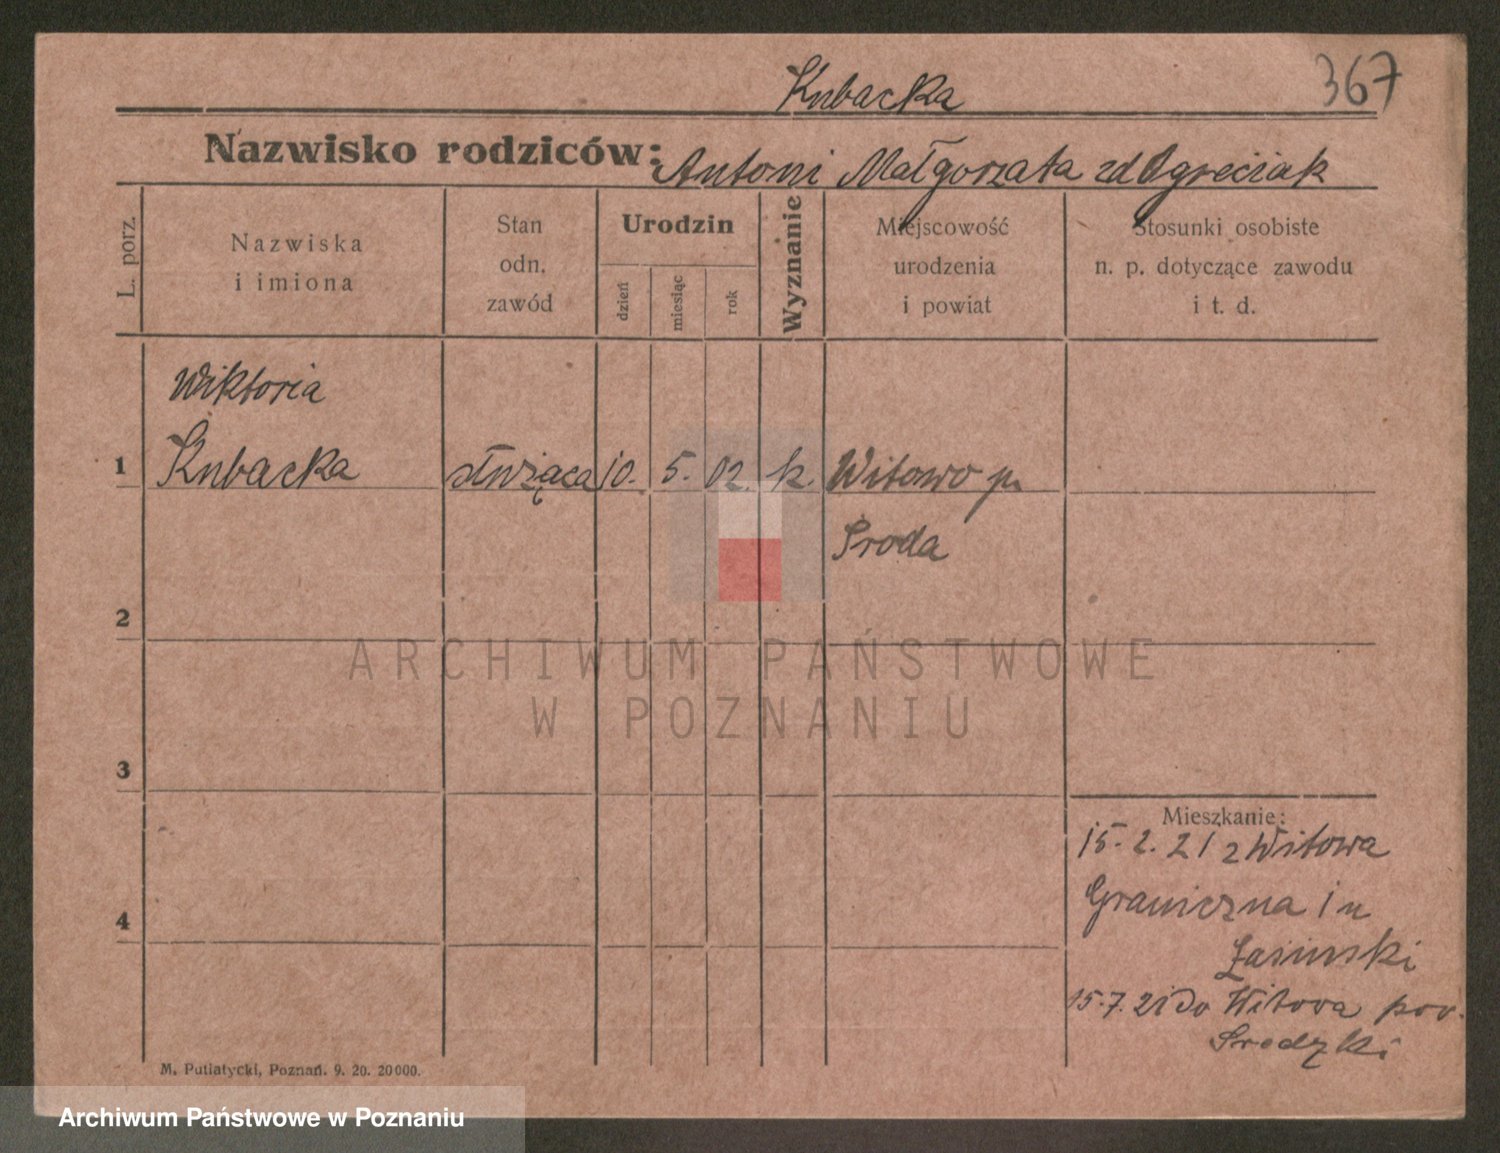 Kubacka 367
Nazwisko rodziców: Antoni Małgorzata zd Ogreciak
L. porz.
Nazwiska
i imiona
Stan
odn.
zawód
Urodzin
dzień
miesiąc
rok
Wyznanie
Miejscowość
urodzenia
i powiat
Stosunki osobiste
n. p. dotyczące zawodu
i t. d.
Wiktoria
1 Kubacka służąca 10. 5. 02. k. Witowo p.
Sroda
2
ARCHIWUM PAŃSTWOWE
W POZNANIU
3
Mieszkanie:
15-2.21 z Witowa
Graniczna 1 u
4
Łasinski
15.7.21 do Witowa pow.
Sredzki
M. Putiatycki, Poznań. 9. 20. 20000.
Archiwum Państwowe w Poznaniu